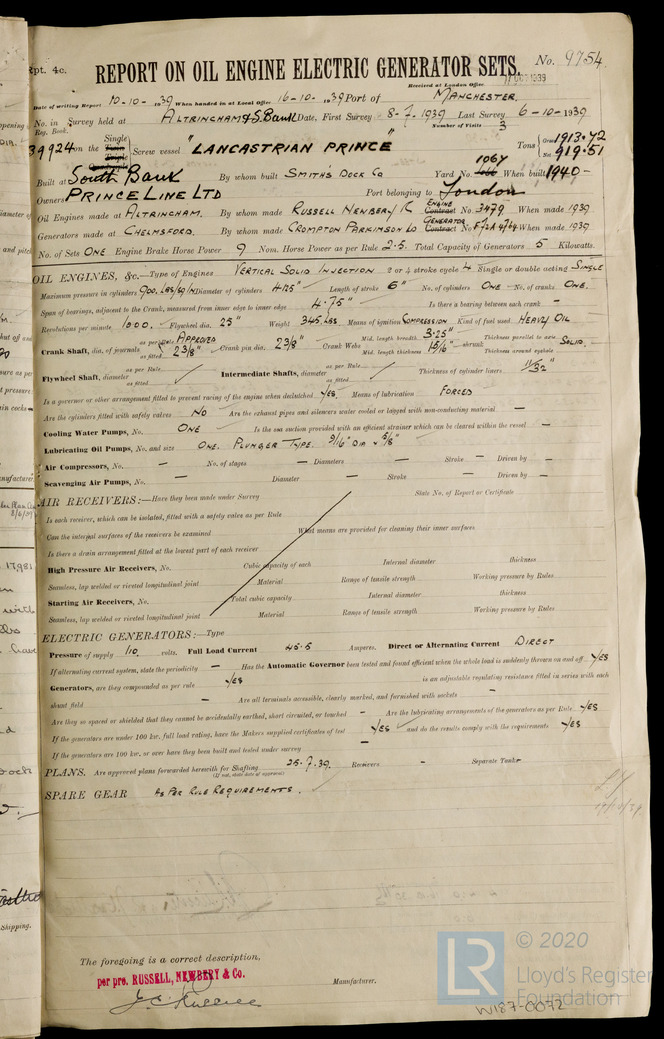 Rpt. 4c.
REPORT ON OIL ENGINE ELECTRIC GENERATOR SETS.
No. 9754
Received at London Office
1939
Date of writing Report 10-10-1939 When handed in at Local Office 16-10-1939 Port of MANCHESTER
No. in Survey held at ALTRINCHAM & S. BANK Date, First Survey 8-7-1939 Last Survey 6-10-1939
Reg. Book. Number of Visits 3
39924 on the Single Triple Screw vessel "LANCASTRIAN PRINCE" Tons Gross 1913.72 Net 919.51
Built at South Bank By whom built SMITH'S DOCK Co Yard No. 1067 When built 1940-
Owners PRINCE LINE LTD Port belonging to London
Oil Engines made at ALTRINCHAM. By whom made RUSSELL NEWBERY & ENGINE Contract No. 3479 When made 1939
Generators made at CHELMSFORD. By whom made CROMPTON PARKINSON LD GENERATOR Contract No. When made 1939
No. of Sets ONE Engine Brake Horse Power 9 Nom. Horse Power as per Rule 2.5. Total Capacity of Generators 5 Kilowatts.
OIL ENGINES, &c.—Type of Engines VERTICAL SOLID INJECTION 2 or 4 stroke cycle 4 Single or double acting SINGLE
Maximum pressure in cylinders 900 LBS/SQ IN Diameter of cylinders 4.125" Length of stroke 6" No. of cylinders ONE No. of cranks ONE.
Span of bearings, adjacent to the Crank, measured from inner edge to inner edge 4.75" Is there a bearing between each crank —
Revolutions per minute 1000. Flywheel dia. 25" Weight 345 LBS Means of ignition COMPRESSION Kind of fuel used HEAVY OIL
Crank Shaft, dia. of journals as per Rule APPROVED as fitted 2 3/8" Crank pin dia. 2 3/8" Crank Webs Mid. length breadth 3.25" Mid. length thickness 15/16" shrunk Thickness parallel to axis SOLID. Thickness around eyehole
Flywheel Shaft, diameter as per Rule as fitted Intermediate Shafts, diameter as per Rule as fitted Thickness of cylinder liners 11/32"
Is a governor or other arrangement fitted to prevent racing of the engine when declutched YES. Means of lubrication FORCED
Are the cylinders fitted with safety valves NO Are the exhaust pipes and silencers water cooled or lagged with non-conducting material —
Cooling Water Pumps, No. ONE Is the sea suction provided with an efficient strainer which can be cleared within the vessel —
Lubricating Oil Pumps, No. and size ONE. PLUNGER TYPE. 9/16" DIA x 5/8"
Air Compressors, No. — No. of stages — Diameters — Stroke — Driven by —
Scavenging Air Pumps, No. — Diameter — Stroke — Driven by —
AIR RECEIVERS:—Have they been made under Survey State No. of Report or Certificate
Is each receiver, which can be isolated, fitted with a safety valve as per Rule
Can the internal surfaces of the receivers be examined What means are provided for cleaning their inner surfaces
Is there a drain arrangement fitted at the lowest part of each receiver
High Pressure Air Receivers, No. Cubic capacity of each Internal diameter thickness
Seamless, lap welded or riveted longitudinal joint Material Range of tensile strength Working pressure by Rules
Starting Air Receivers, No. Total cubic capacity Internal diameter thickness
Seamless, lap welded or riveted longitudinal joint Material Range of tensile strength Working pressure by Rules
ELECTRIC GENERATORS:—Type
Pressure of supply 110 volts. Full Load Current 45.5 Amperes. Direct or Alternating Current DIRECT
If alternating current system, state the periodicity — Has the Automatic Governor been tested and found efficient when the whole load is suddenly thrown on and off YES
Generators, are they compounded as per rule YES is an adjustable regulating resistance fitted in series with each
shunt field — Are all terminals accessible, clearly marked, and furnished with sockets —
Are they so spaced or shielded that they cannot be accidentally earthed, short circuited, or touched — Are the lubricating arrangements of the generators as per Rule YES
If the generators are under 100 kw. full load rating, have the Makers supplied certificates of test YES and do the results comply with the requirements YES
If the generators are 100 kw. or over have they been built and tested under survey —
PLANS. Are approved plans forwarded herewith for Shafting 25.7.39. Receivers - Separate Tanks
(If not, state date of approval)
SPARE GEAR AS PER RULE REQUIREMENTS.
The foregoing is a correct description,
per pro. RUSSELL, NEWBERY & Co.
Manufacturer.
LR © 2020
Lloyd's Register
Foundation
W187-0072